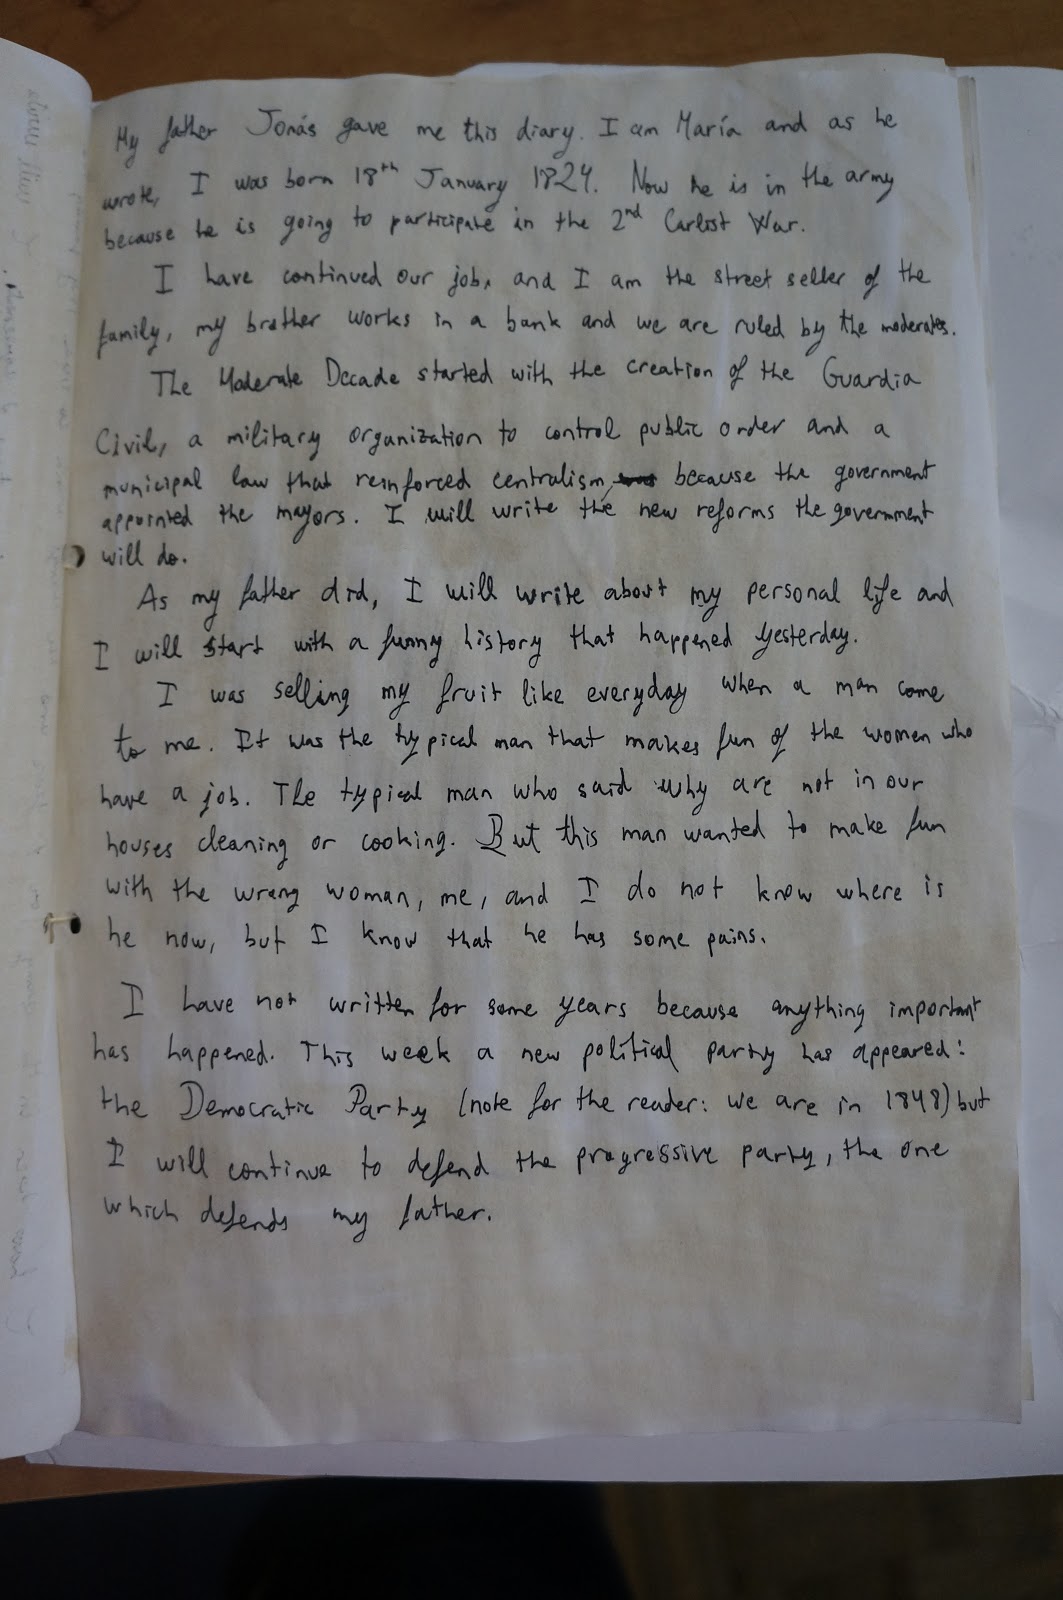 My father Jonás gave me this diary. I am María and as he
wrote, I was born 18th January 1824. Now he is in the army
because he is going to participate in the 2nd Carlist War.
I have continued our job, and I am the street seller of the
family, my brother works in a bank and we are ruled by the moderates.
The Moderate Decade started with the creation of the Guardia
Civil, a military organization to control public order and a
municipal law that reinforced centralism, because the government
appointed the mayors. I will write the new reforms the government
will do.
As my father did, I will write about my personal life and
I will start with a funny history that happened yesterday.
I was selling my fruit like everyday when a man come
to me. It was the typical man that makes fun of the women who
have a job. The typical man who said why are not in our
houses cleaning or cooking. But this man wanted to make fun
with the wrong woman, me, and I do not know where is
he now, but I know that he has some pains.
I have not written for some years because anything important
has happened. This week a new political party has appeared:
the Democratic Party (note for the reader: we are in 1848) but
I will continue to defend the progressive party, the one
which defends my father.